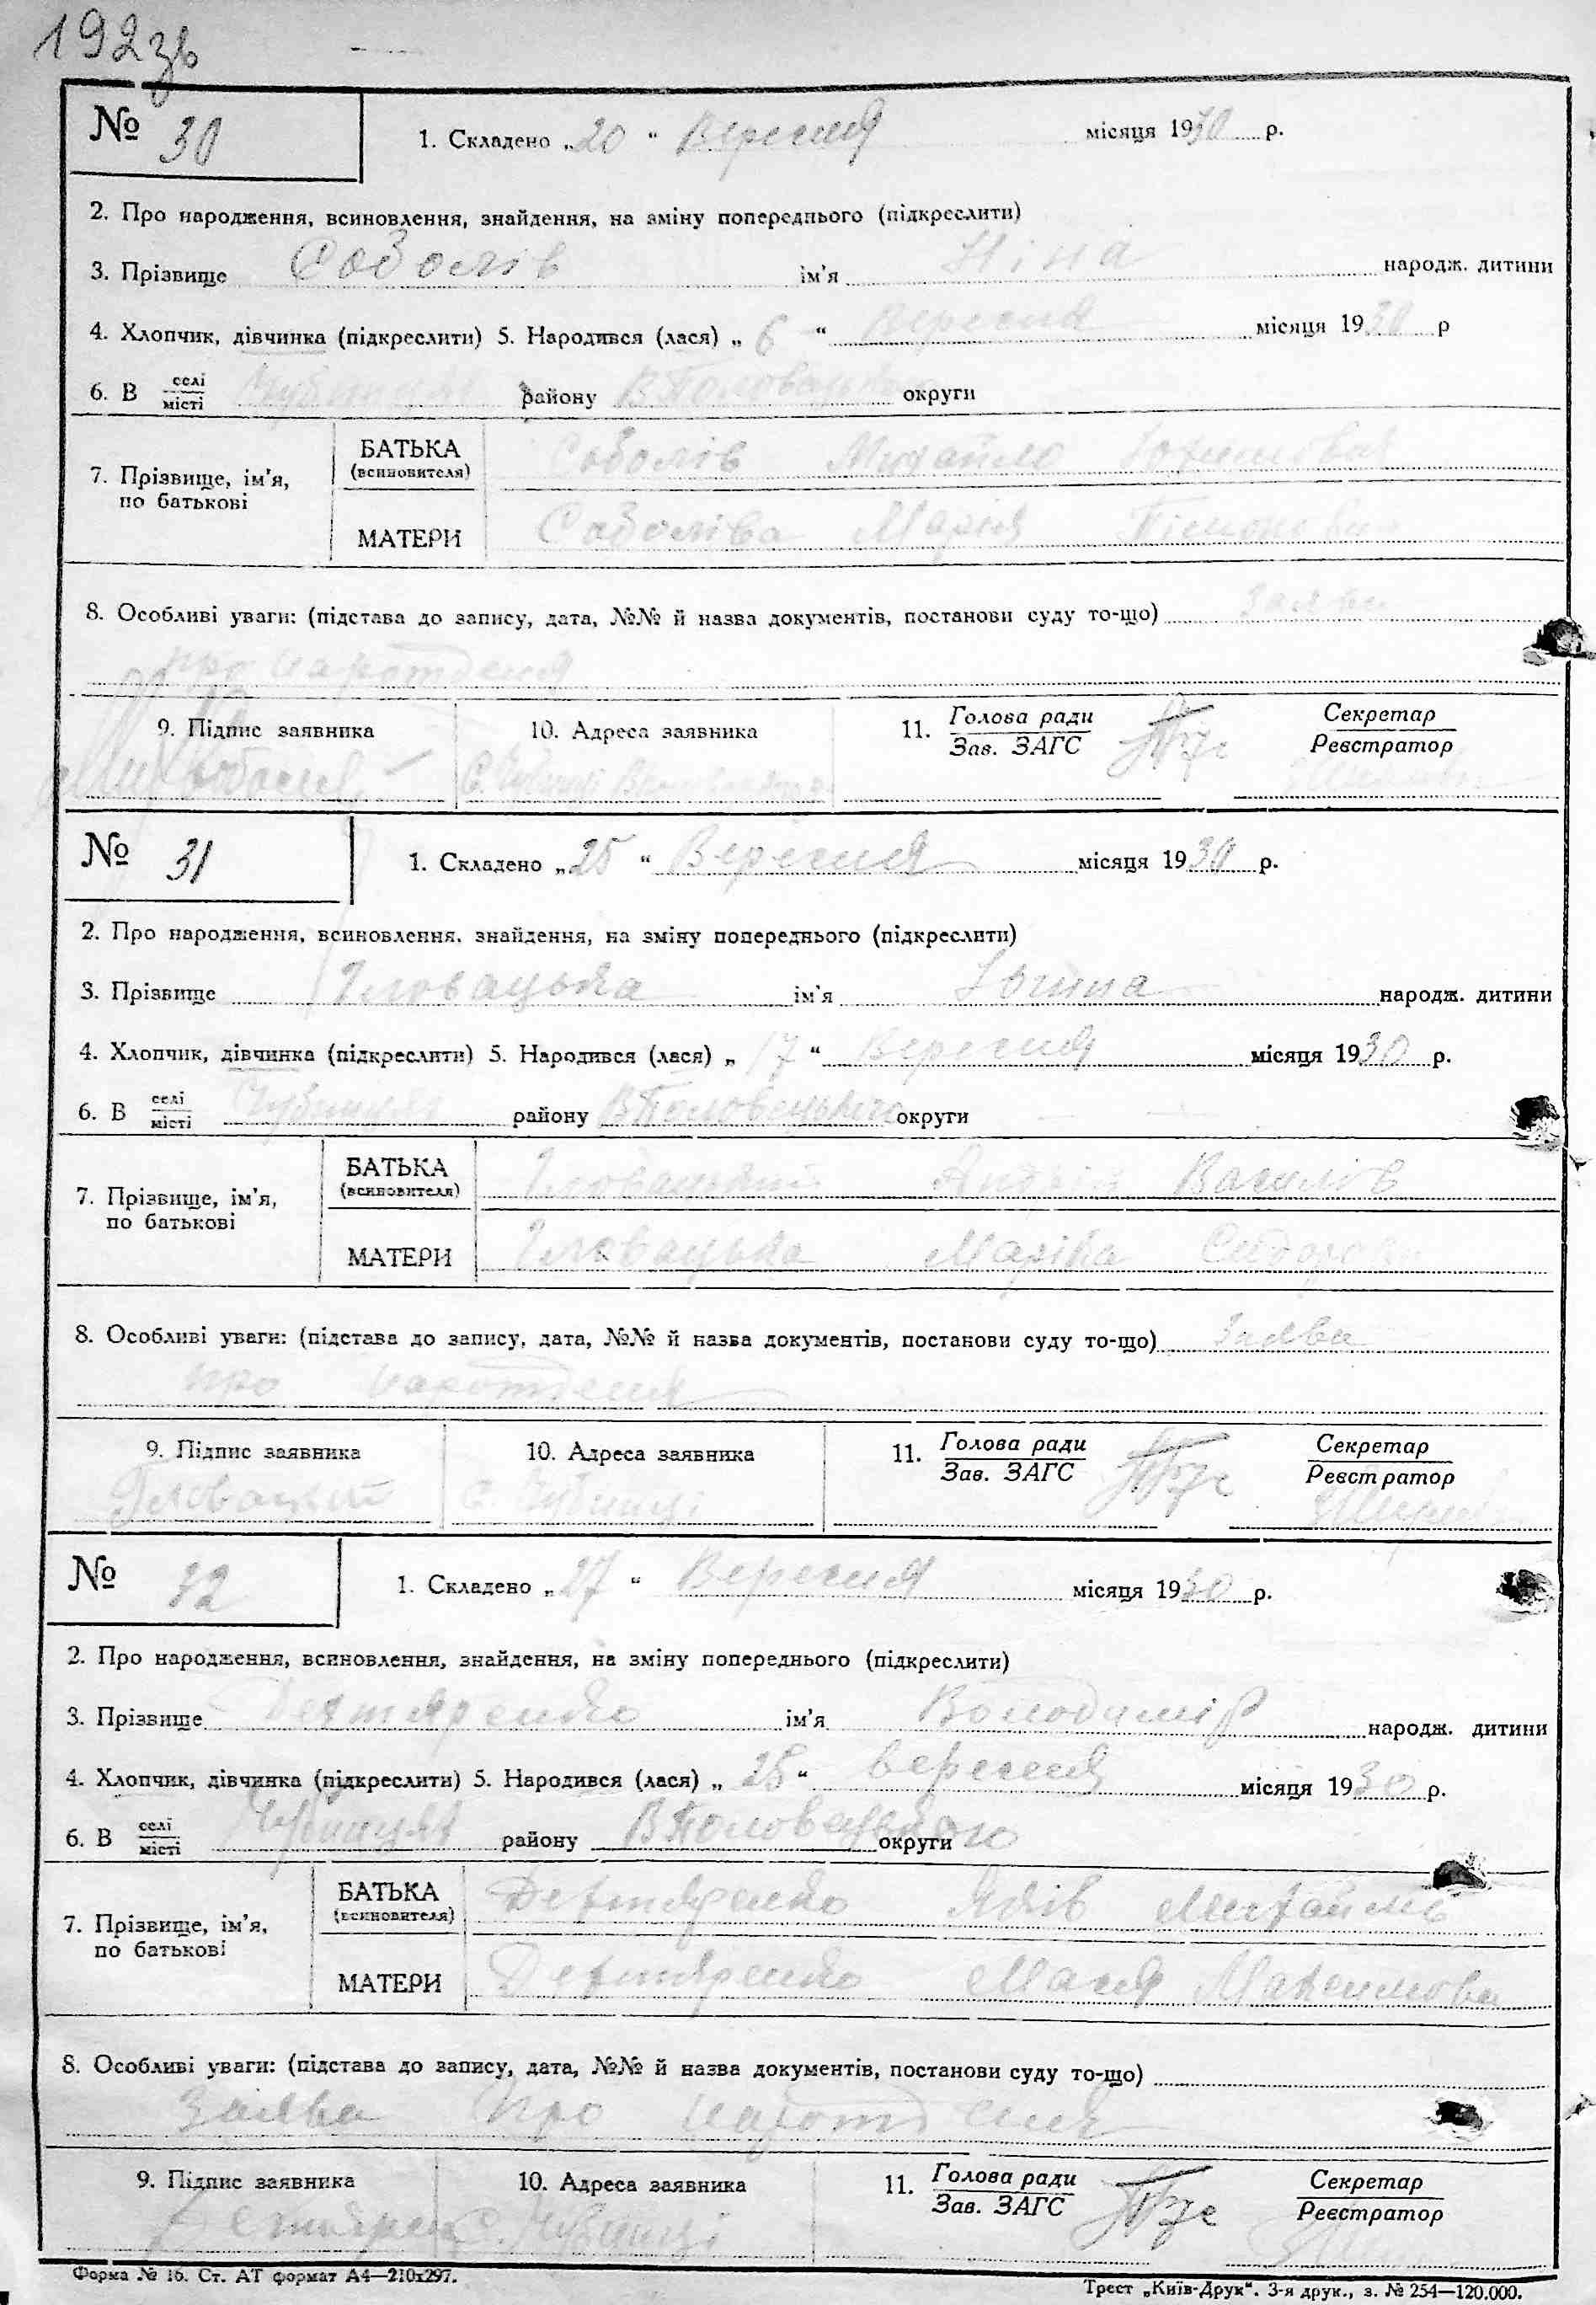 192зв
№ 30
1. Складено „20“ Вересня місяця 1930 р.
2. Про народження, всиновлення, знайдення, на зміну попереднього (підкреслити)
3. Прізвище Соболів ім'я Ніна народж. дитини
4. Хлопчик, дівчинка (підкреслити) 5. Народився (лася) „6“ Вересня місяця 1930 р
6. В селі місті району ВПоловецьк округи
7. Прізвище, ім'я, по батькові
БАТЬКА (всиновителя) Соболів Михайло
МАТЕРИ Соболіва Марія
8. Особливі уваги: (підстава до запису, дата, №№ й назва документів, постанови суду то-що) Заява
про народження
9. Підпис заявника 10. Адреса заявника 11. Голова ради Зав. ЗАГС Секретар Реєстратор
№ 31
1. Складено „25“ Вересня місяця 1930 р.
2. Про народження, всиновлення, знайдення, на зміну попереднього (підкреслити)
3. Прізвище Гловацька ім'я народж. дитини
4. Хлопчик, дівчинка (підкреслити) 5. Народився (лася) „17“ Вересня місяця 1930 р.
6. В селі місті Чубинцях району ВПоловецького округи
7. Прізвище, ім'я, по батькові
БАТЬКА (всиновителя) Гловацький Андрій Василів
МАТЕРИ Гловацька Маріка Сидорова
8. Особливі уваги: (підстава до запису, дата, №№ й назва документів, постанови суду то-що) Заява
про народження
9. Підпис заявника 10. Адреса заявника 11. Голова ради Зав. ЗАГС Секретар Реєстратор
Гловацький с. Чубинці
№ 32
1. Складено „27“ Вересня місяця 1930 р.
2. Про народження, всиновлення, знайдення, на зміну попереднього (підкреслити)
3. Прізвище Дехтяренко ім'я Володимір народж. дитини
4. Хлопчик, дівчинка (підкреслити) 5. Народився (лася) „25“ вересня місяця 1930 р.
6. В селі місті Чубинцях району ВПоловецького округи
7. Прізвище, ім'я, по батькові
БАТЬКА (всиновителя) Дехтяренко Яків Михайлів
МАТЕРИ Дехтяренко Мася Максимова
8. Особливі уваги: (підстава до запису, дата, №№ й назва документів, постанови суду то-що)
Заява про народження
9. Підпис заявника 10. Адреса заявника 11. Голова ради Зав. ЗАГС Секретар Реєстратор
с. Чубинці
Форма № 16. Ст. АТ формат А4—210х297.
Трест „Київ-Друк“. 3-я друк., з. № 254—120.000.